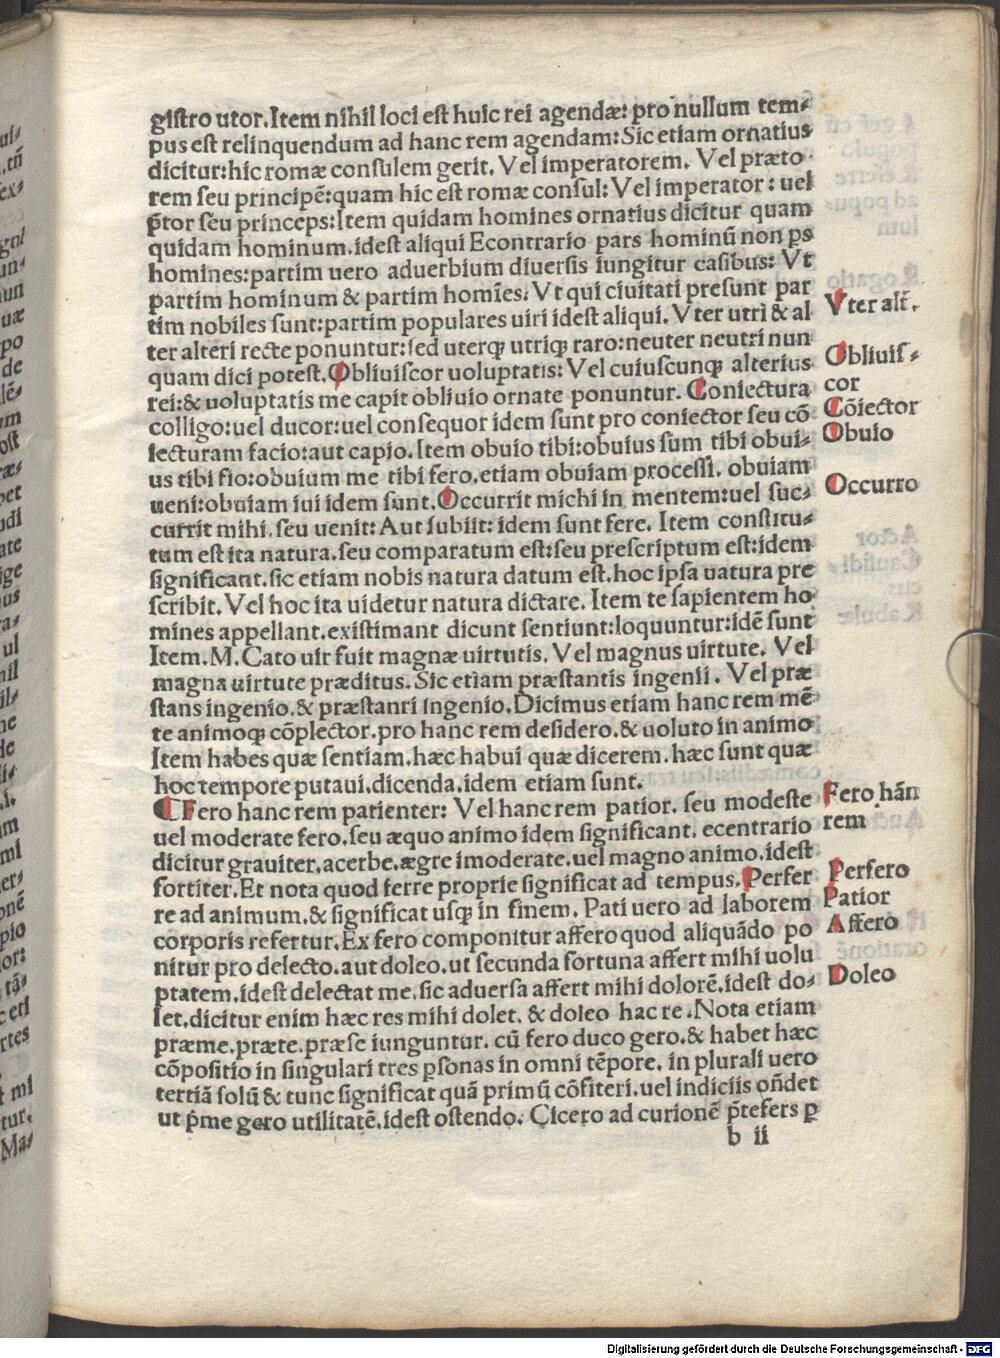 giſtro utor.Item nihil loci eſt huic rei agendæ: pro nullum tem⸗
pus eſt relinquendum ad hanc rem agendam: Sic etiam ornatius
dicitur:hic romæ conſulem gerit. Vel imperatorem. Vel præto
rem ſeu principē:quam hic eſt romæ conſul: Vel imperator: uel
p̄tor ſeu princeps:Item quidam homines ornatius dicitur quam
quidam hominum.ideſt aliqui Econtrario pars hominū non ꝑs
homines:partim uero aduerbium diuerſis iungitur caſibus: Vt
partim hominum & partim homīes. Vt qui ciuitati preſunt par
tim nobiles ſunt:partim populares uiri ideſt aliqui. Vter utri & al
ter alteri recte ponuntur:ſed uterqꝫ utriqꝫ raro:neuter neutri nun
quam dici poteſt. Obliuiſcor uoluptatis: Vel cuiuſcunqꝫ alterius
rei:& uoluptatis me capit obliuio ornate ponuntur. Coniectura
colligo:uel ducor:uel conſequor idem ſunt pro coniector ſeu cō
iecturam facio:aut capio. Item obuio tibi:obuius ſum tibi obui⸗
us tibi fio:obuium me tibi fero.etiam obuiam proceſſi. obuiam
ueni:obuiam iui idem ſunt. Occurrit michi in mentem:uel ſuc⸗
currit mihi.ſeu uenit: Aut ſubiit: idem ſunt fere. Item conſtitu⸗
tum eſt ita natura.ſeu comparatum eſt:ſeu preſcriptum eſt:idem
ſignificant.ſic etiam nobis natura datum eſt.hoc ipſa uatura pre
ſcribit. Vel hoc ita uidetur natura dictare. Item te ſapientem ho
mines appellant.exiſtimant dicunt ſentiunt:loquuntur:idē ſunt
Item.M.Cato uir fuit magnæ uirtutis. Vel magnus uirtute. Vel
magna uirtute præditus. Sic etiam præſtantis ingenii. Vel præ
ſtans ingenio.& præſtanri ingenio.Dicimus etiam hanc rem mē
te animoqꝫ cōplector.pro hanc rem deſidero.& uoluto in animo
Item habes quæ ſentiam.hæc habui quæ dicerem.hæc ſunt quæ
hoc tempore putaui.dicenda.idem etiam ſunt.
¶ Fero hanc rem patienter: Vel hanc rem patior. ſeu modeſte
uel moderate fero.ſeu æquo animo idem ſignificant. ecentrario
dicitur grauiter.acerbe.ægre imoderate.uel magno animo.ideſt
fortiter. Et nota quod ferre proprie ſignificat ad tempus. Perfer
re ad animum.& ſignificat uſqꝫ in finem. Pati uero ad laborem
corporis refertur. Ex fero componitur affero quod aliquādo po
nitur pro delecto.aut doleo.ut ſecunda fortuna affert mihi uolu
ptatem.ideſt delectat me.ſic aduerſa affert mihi dolorē.ideſt do⸗
let.dicitur enim hæc res mihi dolet. & doleo hac re.Nota etiam
præme.præte.præſe iunguntur. cū fero duco gero.& habet hæc
cōpoſitio in ſingulari tres ꝑſonas in omni tēpore. in plurali uero
tertiā ſolū & tunc ſignificat quā primū cōfiteri.uel indiciis oñdet
ut p̄me gero utilitatē.ideſt oſtendo. Cicero ad curionē p̄tefers ꝑ
b ii
Vter alt̄.
Obliuiſ⸗
cor
Cōiector
Obuio
Occurro
Fero hāń
rem
Perfero
Patior
Affero
Doleo
Digitalisierung gefördert durch die Deutsche Forschungsgemeinschaft - DFG